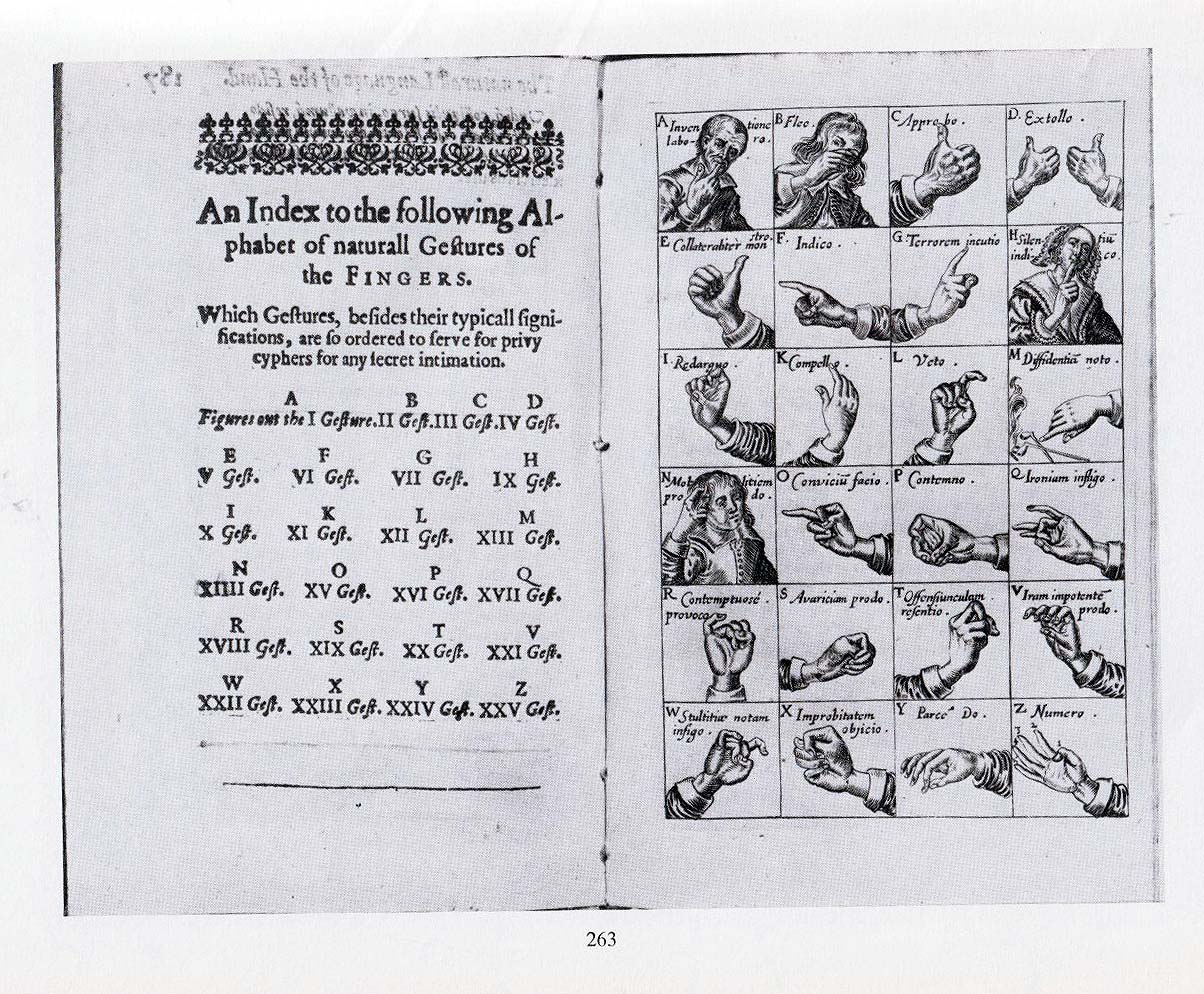 An Index to the following Al-
phabet of naturall Geſtures of
the FINGERS.
Which Geſtures, beſides their typicall ſigni-
fications, are ſo ordered to ſerve for privy
cyphers for any ſecret intimation.
A B C D
Figures out the I Geſture. II Geſt. III Geſt. IV Geſt.
E F G H
V Geſt. VI Geſt. VII Geſt. IX Geſt.
I K L M
X Geſt. XI Geſt. XII Geſt. XIII Geſt.
N O P Q
XIIII Geſt. XV Geſt. XVI Geſt. XVII Geſt.
R S T V
XVIII Geſt. XIX Geſt. XX Geſt. XXI Geſt.
W X Y Z
XXII Geſt. XXIII Geſt. XXIV Geſt. XXV Geſt.
A Inven tione
labo- ro.
B Fleo.
C Approbo.
D. Extollo.
E Collaterabiter stro-
mon
F. Indico.
G. Terrorem incutio
H Silen- tiũ
indi- co.
I. Redarguo.
K Compello.
L Veto.
M Diffidentiã noto.
N
pro do.
O Conviciũ facio.
P Contemno.
Q Ironiam infligo.
R Contemptuosé.
provoco.
S Avariciam prodo.
T Offensiunculam
resentio.
V Iram impotentẽ
prodo.
W Stultitiæ notam
infigo.
X Improbitatem
objicio.
Y Parcè Do.
Z Numero.
3 2 1
263